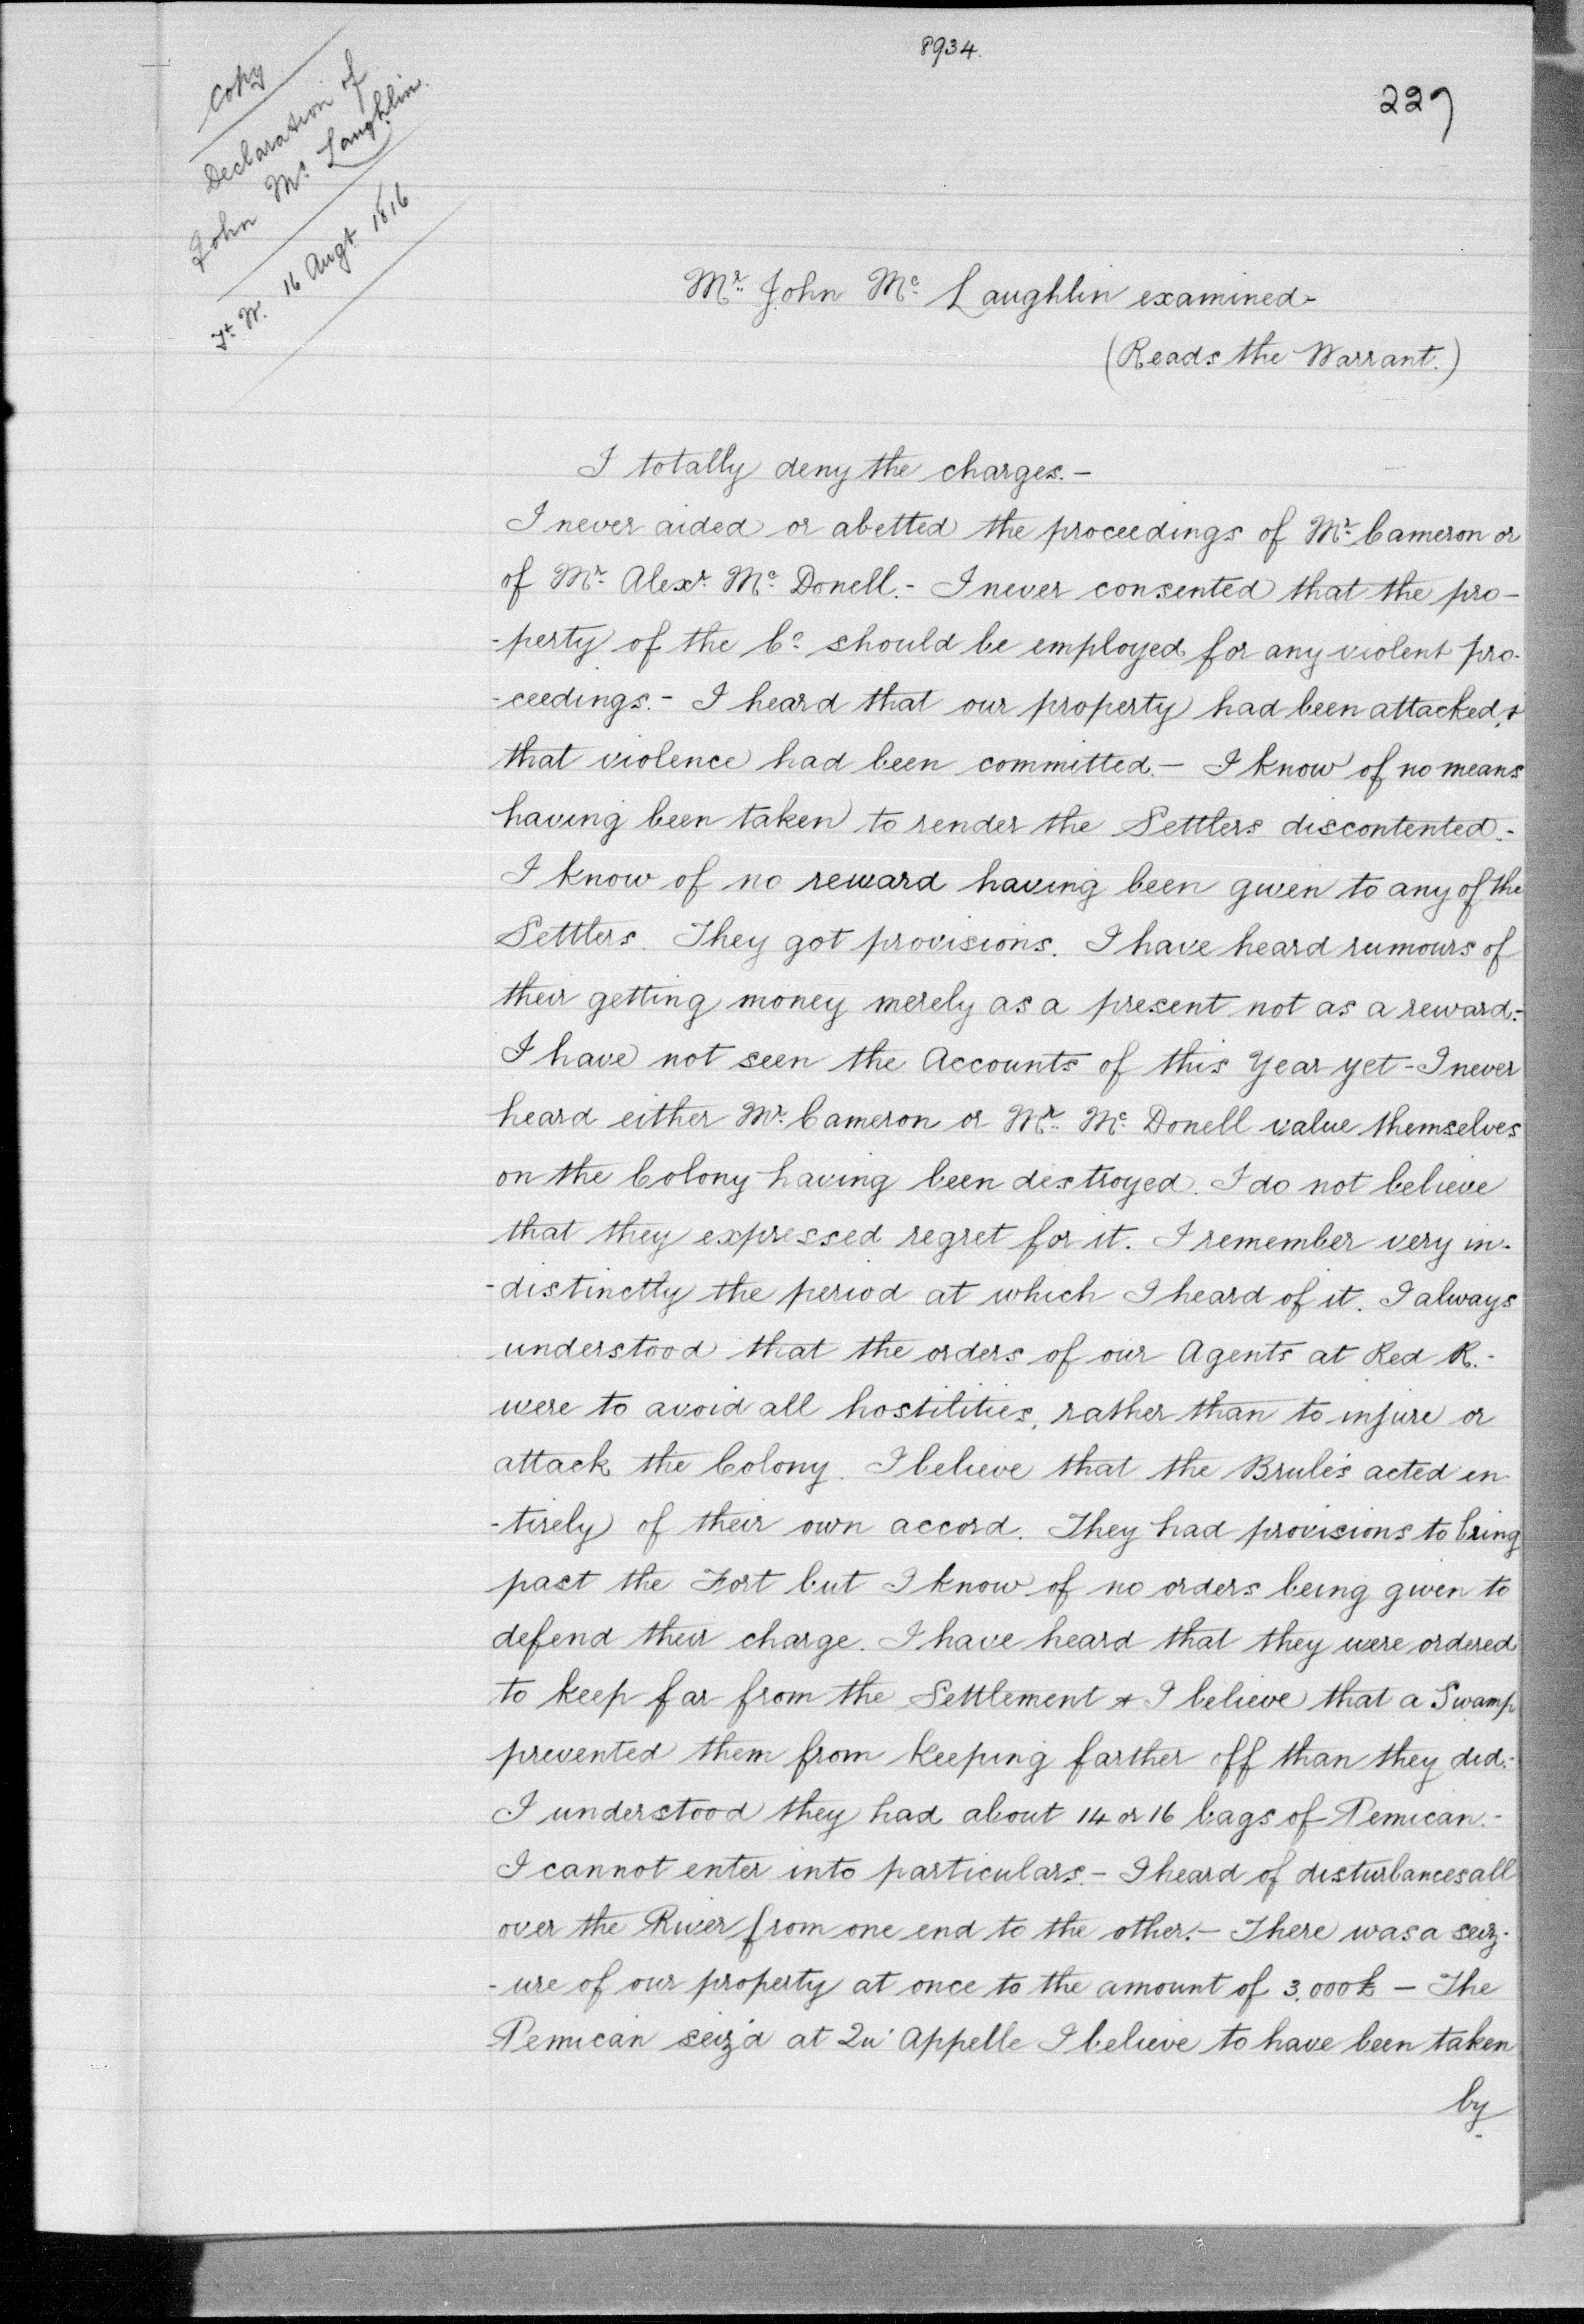 8934.
229
Copy
Declaration of
John Mc. Laughlin.
Ft. W. 16 Augt. 1816
Mr. John Mc. Laughlin examined-
(Reads the Warrant.)
I totally deny the charges.-
I never aided or abetted the proceedings of Mr. Cameron or
of Mr. Alexr. Mc. Donell.- I never consented that the pro-
-perty of the Co. should be employed for any violent pro-
-ceedings.- I heard that our property had been attacked, &
that violence had been committed.- I know of no means
having been taken to render the Settlers discontented.-
I know of no reward having been given to any of the
Settlers. They got provisions. I have heard rumours of
their getting money merely as a present not as a reward:-
I have not seen the Accounts of this Year yet - I never
heard either Mr. Cameron or Mr. Mc. Donell value themselves
on the Colony having been destroyed. I do not believe
that they expressed regret for it. I remember very in-
-distinctly the period at which I heard of it. I always
understood that the orders of our Agents at Red R.-
were to avoid all hostilities, rather than to injure or
attack the Colony. I believe that the Brulés acted en-
-tirely of their own accord. They had provisions to bring
past the Fort but I know of no orders being given to
defend their charge. I have heard that they were ordered
to keep far from the Settlement & I believe that a Swamp
prevented them from keeping farther off than they did.-
I understood they had about 14 or 16 bags of Pemican.-
I cannot enter into particulars.- I heard of disturbances all
over the River from one end to the other.- There was a seiz-
-ure of our property at once to the amount of 3,000£ - The
Pemican seiz'd at Qu'Appelle I believe to have been taken
by